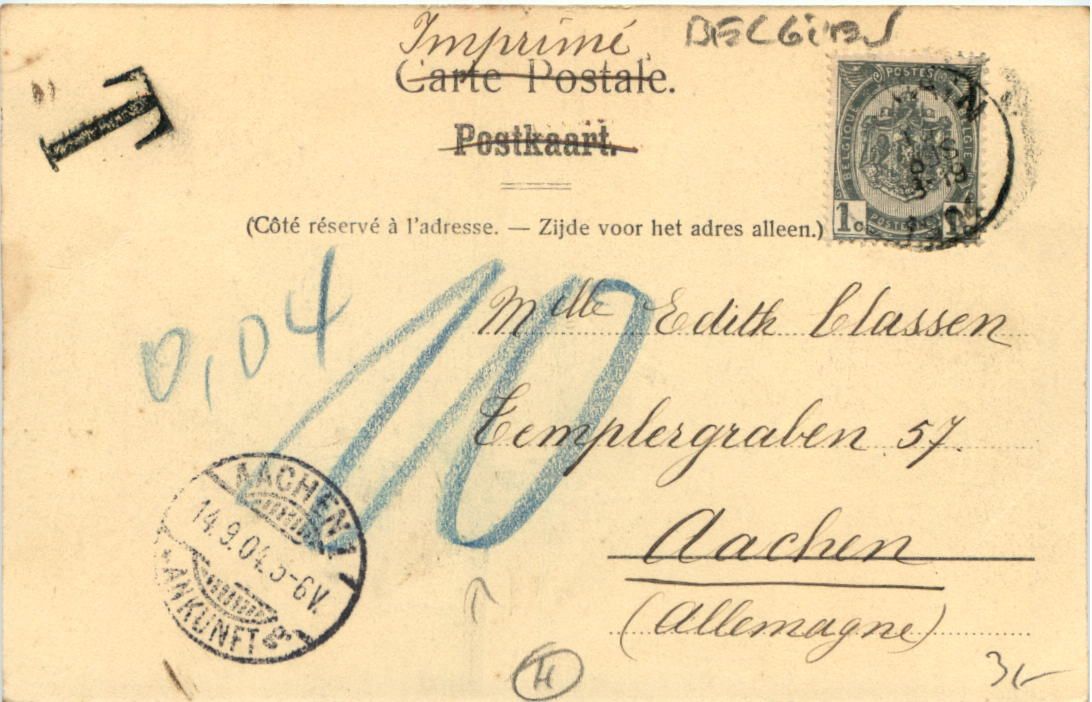 Imprimé
BELGIEN
Carte Postale.
Postkaart.
(Côté réservé à l'adresse. — Zijde voor het adres alleen.)
T
POSTES
BELGIQUE
BELGIE
1c
POSTERIJEN
1c
0,04
10
Mlle Edith Classen
Templergraben 57
Aachen
(Allemagne)
AACHEN 1
14.9.04.5-6V.
ANKUNFT
H
3,-